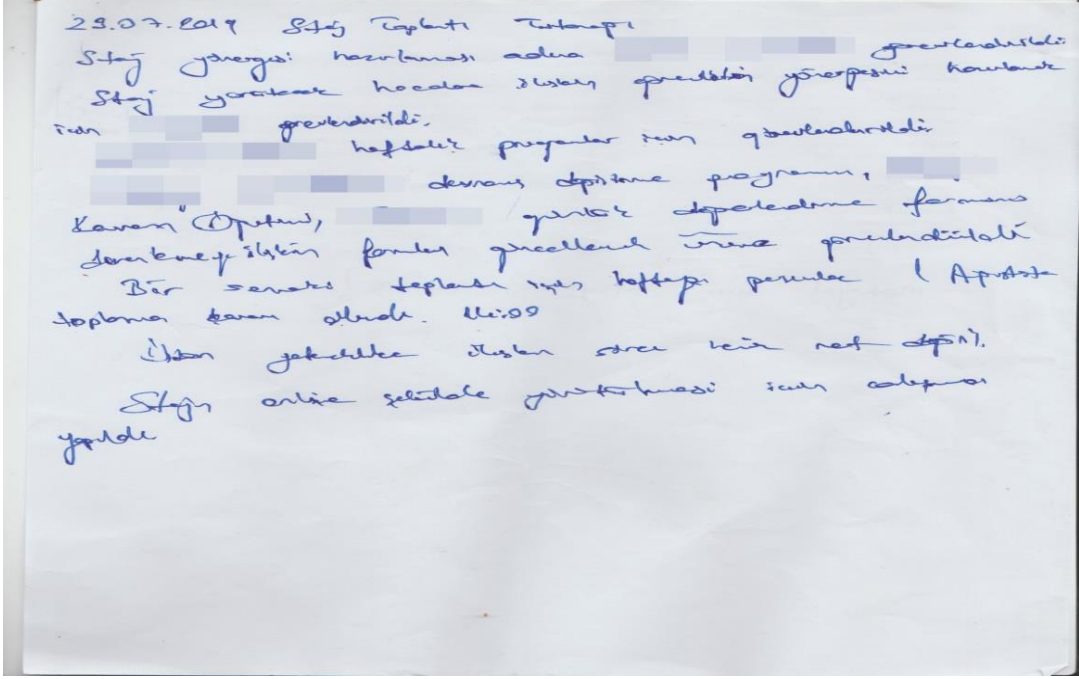 29.07.2019 Staj Toplantı Tutanağı
Staj yönergesi hazırlaması adına görevlendirildi
Staj yapılacak hocalara ilişkin yönergesini hazırlamak
için görevlendirildi.
haftalık programlar için görevlendirildi
davranış değiştirme programı,
Kavram Öğretimi, günlük değerlendirme formunu
ilişkin formları güncellemek üzere görevlendirildi
Bir sonraki toplantı için haftaya perşembe (1 Ağustos
toplanma kararı alındı. 11:00
ilişkin süreç net değil.
Stajın şekilde yürütülmesi için çalışması
yapıldı